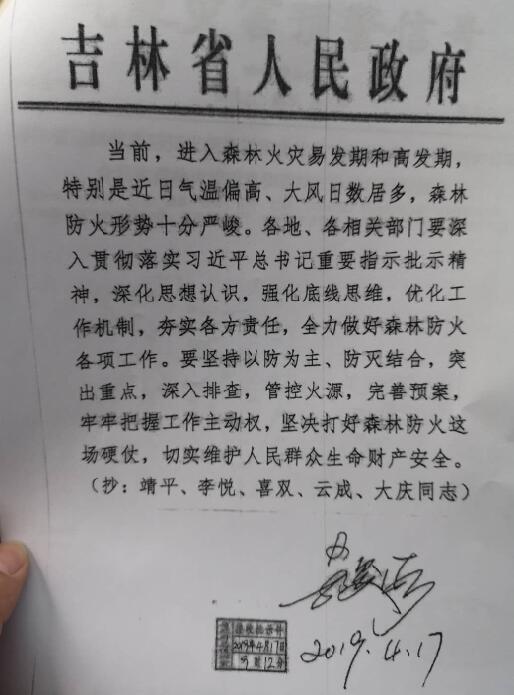 吉林省人民政府
当前，进入森林火灾易发期和高发期，
特别是近日气温偏高、大风日数居多，森林
防火形势十分严峻。各地、各相关部门要深
入贯彻落实习近平总书记重要指示批示精
神，深化思想认识，强化底线思维，优化工
作机制，夯实各方责任，全力做好森林防火
各项工作。要坚持以防为主、防灭结合，突
出重点，深入排查，管控火源，完善预案，
牢牢把握工作主动权，坚决打好森林防火这
场硬仗，切实维护人民群众生命财产安全。
（抄：靖平、李悦、喜双、云成、大庆同志）
2019.4.17
2019年4月17日
9时12分